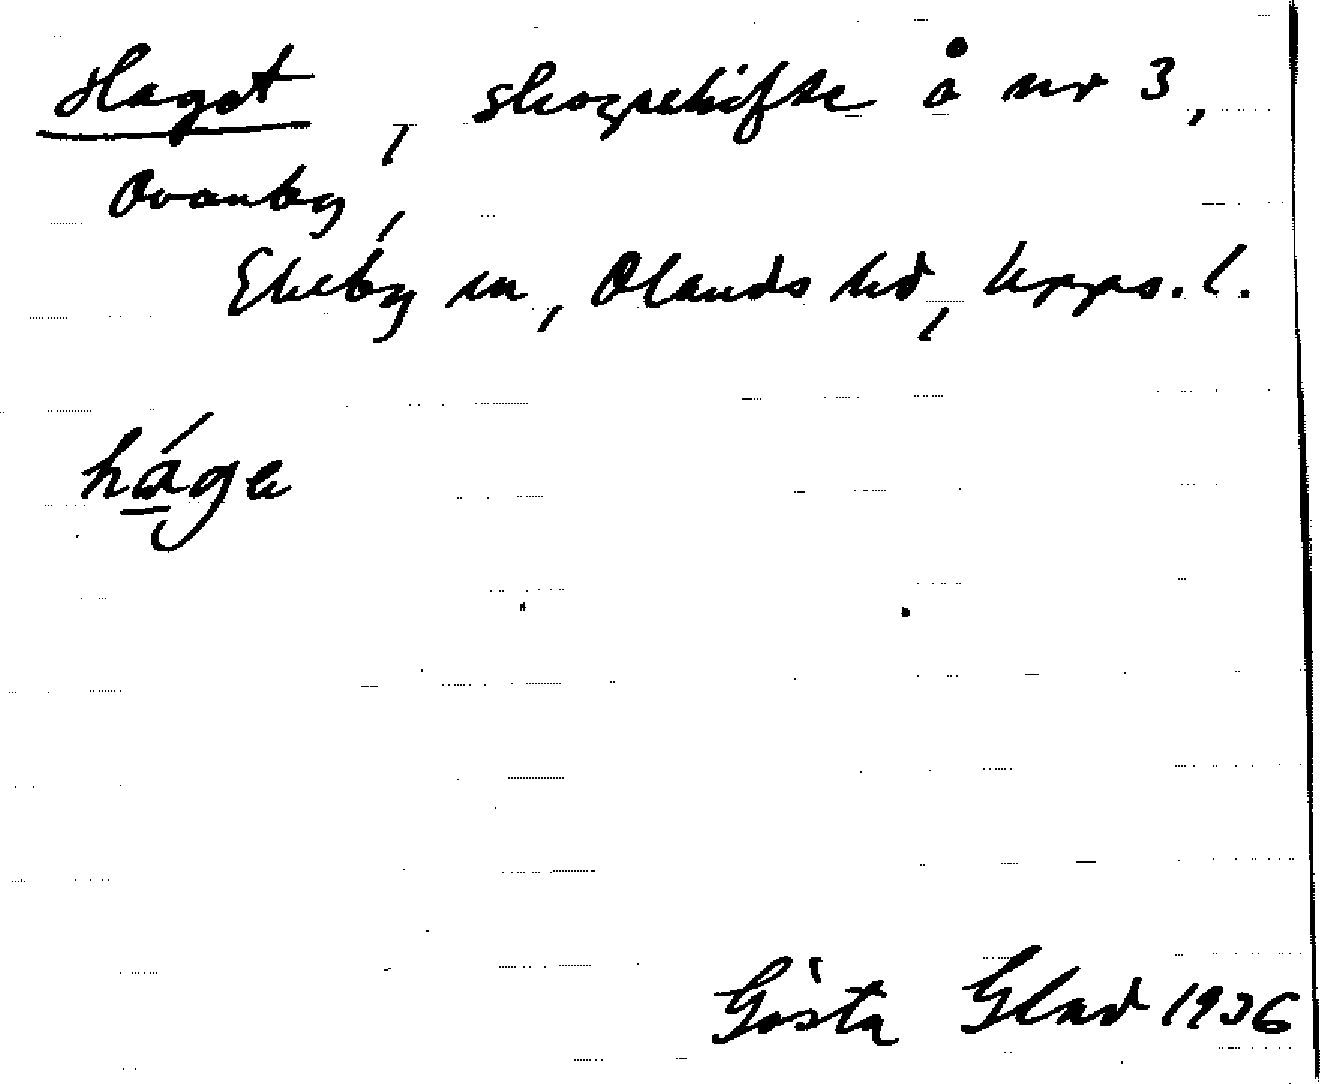 Haget, skogsskifte å nr 3,
Ovanby,
Ekeby sn, Olands hd, Upps. l.
háge
Gösta Glad 1936